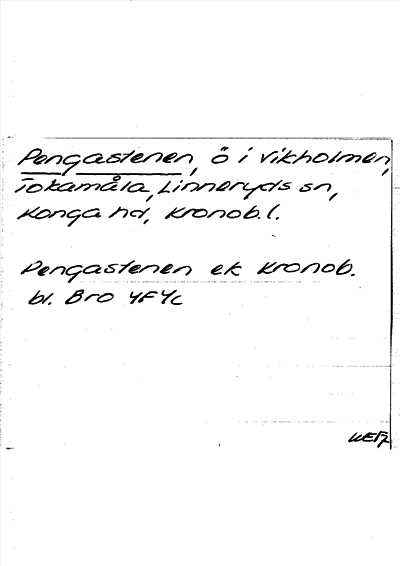 Pengastenen, ö i Vikholmen,
Tokamåla, Linneryds sn,
Konga hd, Kronob. l.
Pengastenen ek Kronob.
bl. Bro 4F4c